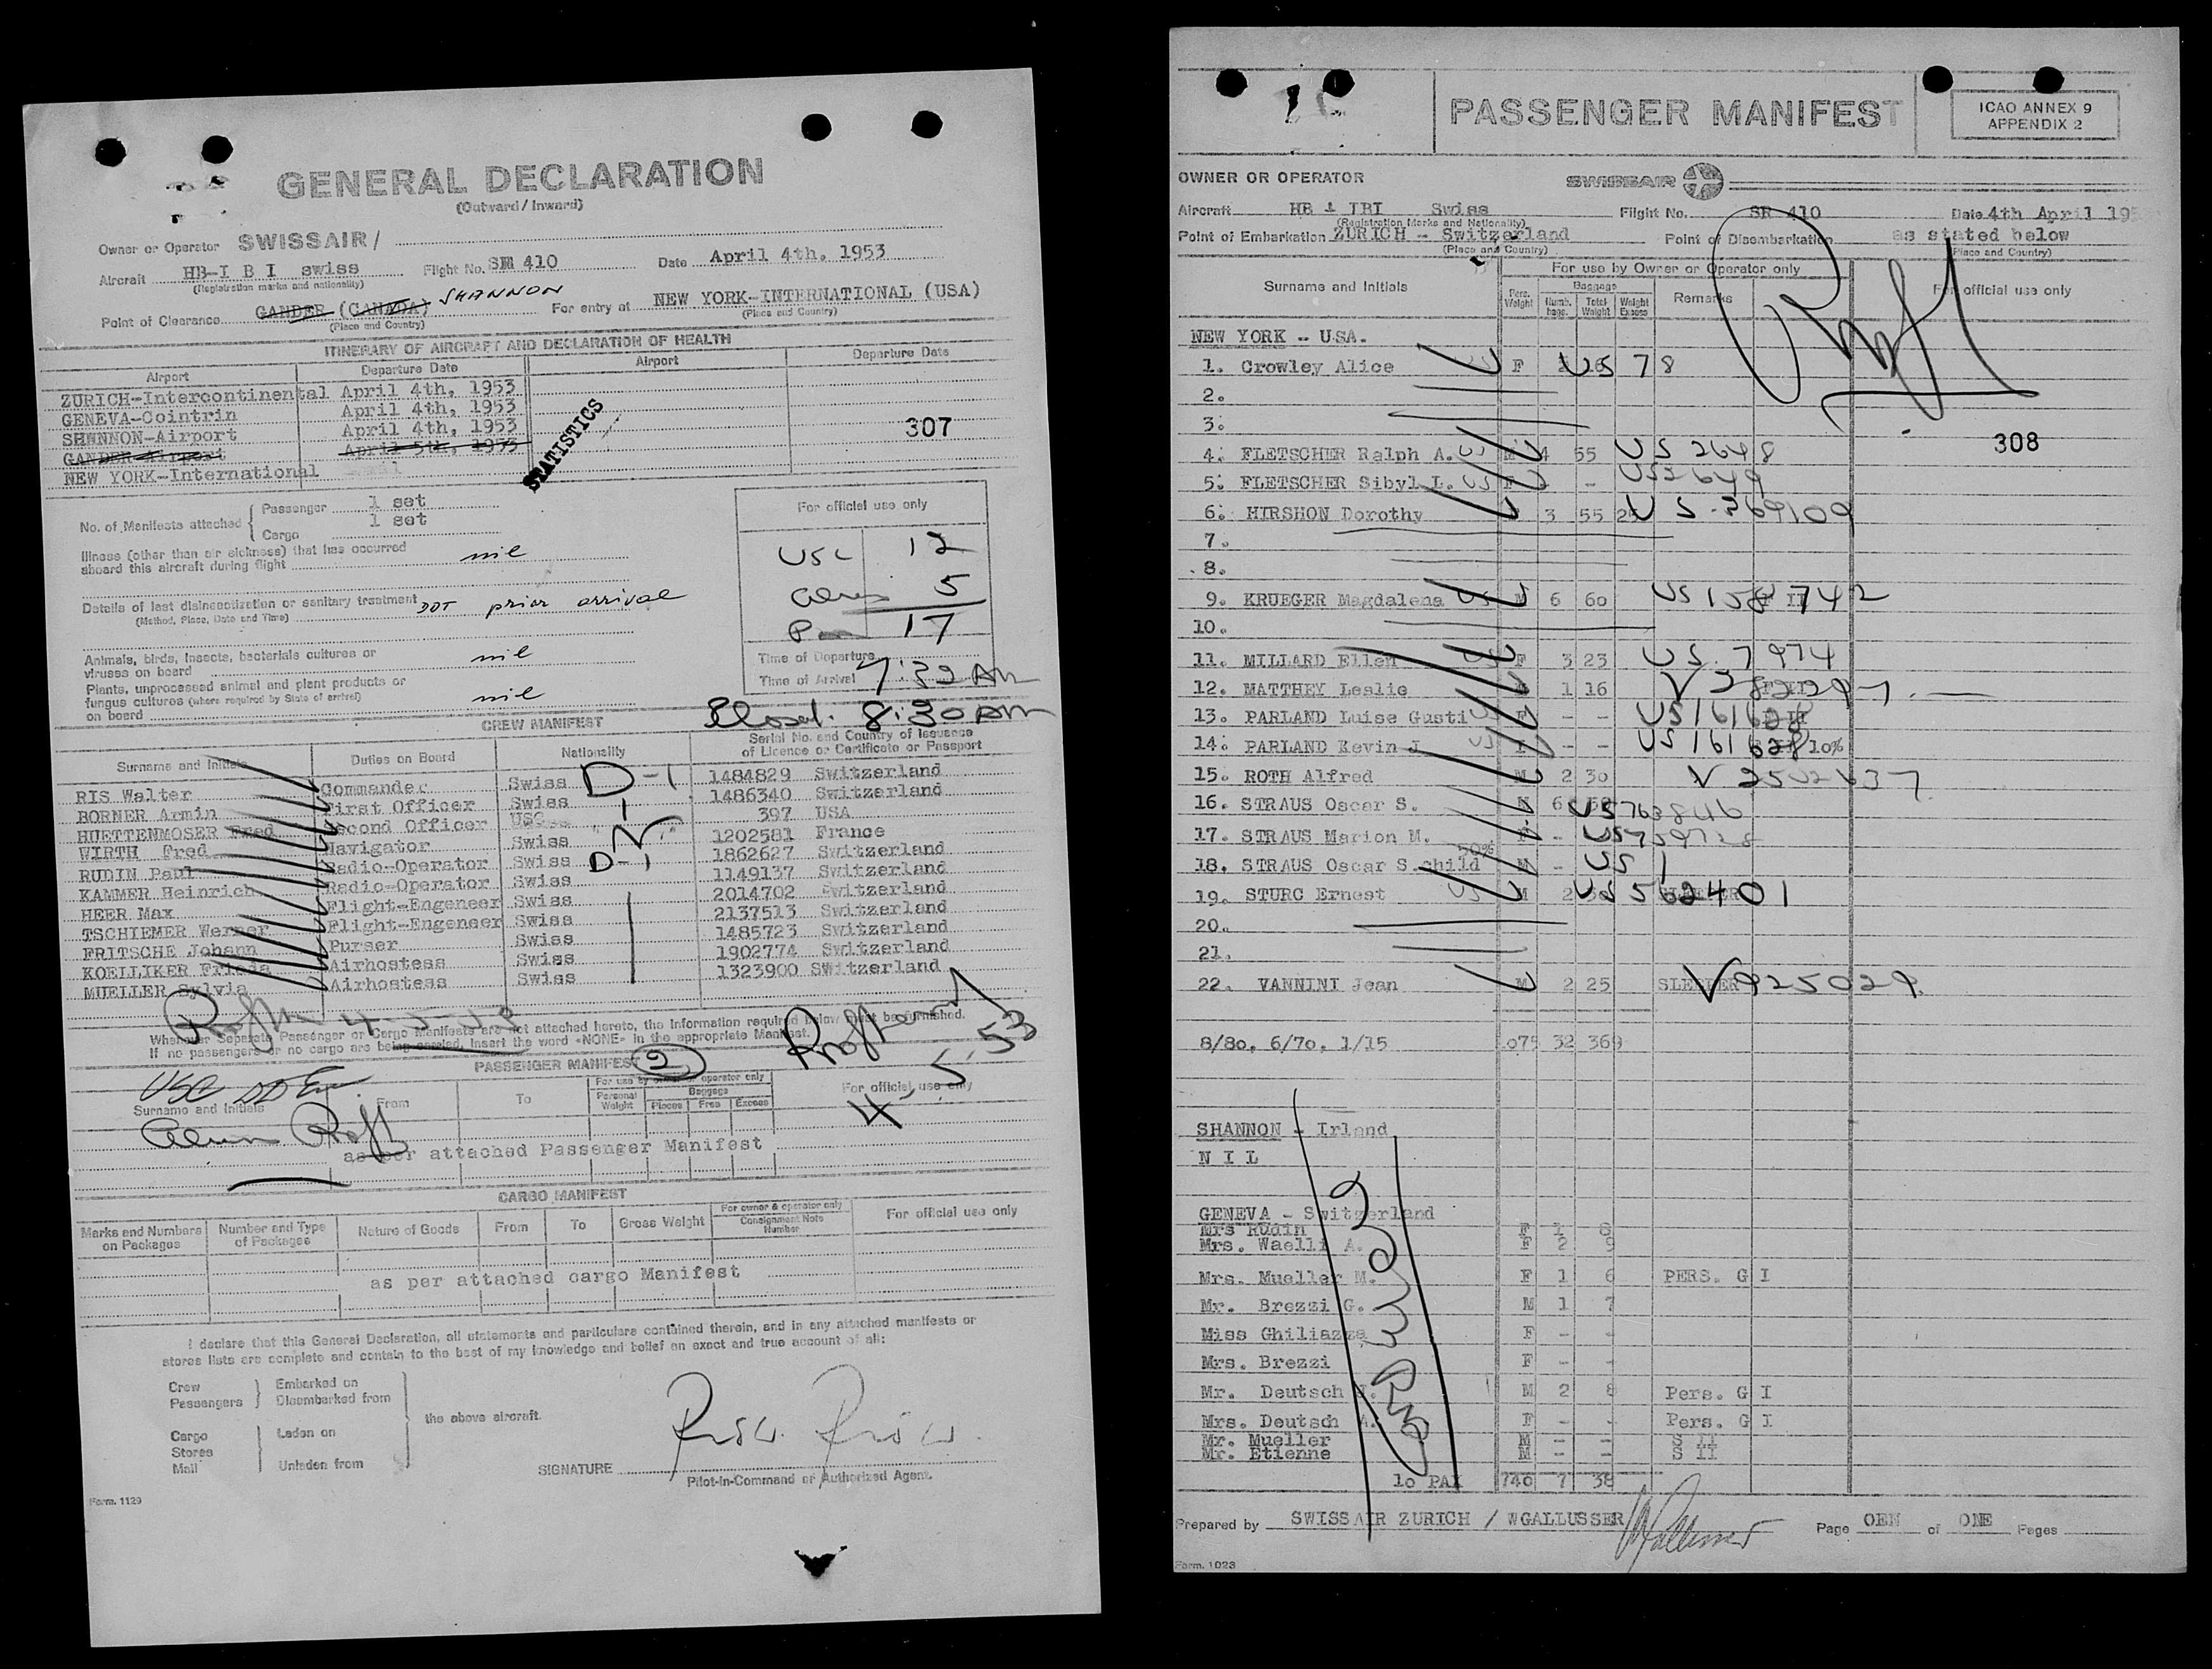 GENERAL DECLARATION
(Outward/Inward)
Owner or Operator SWISSAIR/
Aircraft HB-I B I swiss Flight No. SR 410 Date April 4th, 1953
(Registration marks and nationality)
Point of Clearance GANDER (CANADA) SHANNON For entry at NEW YORK-INTERNATIONAL (USA)
(Place and Country) (Place and Country)
ITINERARY OF AIRCRAFT AND DECLARATION OF HEALTH
Airport Departure Date Airport Departure Date
ZURICH-Intercontinental April 4th, 1953
GENEVA-Cointrin April 4th, 1953
SHANNON-Airport April 4th, 1953
GANDER-Airport April 5th, 1953
NEW YORK-International
STATISTICS
307
No. of Manifests attached
Passenger 1 set
Cargo 1 set
Illness (other than air sickness) that has occurred
aboard this aircraft during flight nil
Details of last disinsectization or sanitary treatment DDT prior arrival
(Method, Place, Date and Time)
Animals, birds, insects, bacterials cultures or
viruses on board nil
Plants, unprocessed animal and plant products or
fungus cultures (where required by State of arrival)
on board nil
For official use only
USC 12
Aliens 5
17
Time of Departure
Time of Arrival 7:32 AM
Closed. 8:30 AM
CREW MANIFEST
Surname and Initials Duties on Board Nationality Serial No. and Country of Issuance
of Licence or Certificate or Passport
RIS Walter Commander Swiss D-1 1484829 Switzerland
BORNER Armin First Officer Swiss 1486340 Switzerland
HUETTENMOSER Fred Second Officer USC 397 USA
WIRTH Fred Navigator Swiss 1202581 France
RUDIN Paul Radio-Operator Swiss D-1 1862627 Switzerland
KAMMER Heinrich Radio-Operator Swiss 1149137 Switzerland
HEER Max Flight-Engeneer Swiss 2014702 Switzerland
TSCHIEMER Werner Flight-Engeneer Swiss 2137513 Switzerland
FRITSCHE Johann Purser Swiss 1485723 Switzerland
KOELLIKER Frieda Airhostess Swiss 1902774 Switzerland
MUELLER Sylvia Airhostess Swiss 1323900 Switzerland
Whenever Separate Passenger or Cargo Manifests are not attached hereto, the information required below must be furnished.
If no passengers or no cargo are being carried, insert the word «NONE» in the appropriate Manifest.
PASSENGER MANIFEST 2
4 5 53
USC
Surname and Initials From To
For use by owner or operator only
Personal Weight Baggage
Pieces Free Excess
For official use only
as per attached Passenger Manifest
CARGO MANIFEST
Marks and Numbers on Packages Number and Type of Packages Nature of Goods From To Gross Weight For owner & operator only
Consignment Note Number For official use only
as per attached cargo Manifest
I declare that this General Declaration, all statements and particulars contained therein, and in any attached manifests or
stores lists are complete and contain to the best of my knowledge and belief an exact and true account of all:
Crew Embarked on
Passengers Disembarked from
the above aircraft.
Cargo Laden on
Stores
Mail Unladen from
SIGNATURE
Pilot-in-Command or Authorized Agent.
Form. 1129
PASSENGER MANIFEST
ICAO ANNEX 9
APPENDIX 2
OWNER OR OPERATOR SWISSAIR
Aircraft HB - IBI Swiss Flight No. SR 410 Date 4th April 195
(Registration Marks and Nationality)
Point of Embarkation ZURICH - Switzerland Point of Disembarkation as stated below
(Place and Country) (Place and Country)
For use by Owner or Operator only
Surname and Initials Pers. Weight Baggage Remarks For official use only
Numb. bagg. Total Weight Weight Excess
NEW YORK - USA.
1. Crowley Alice F US 78
2.
3.
308
4. FLETSCHER Ralph A. US M 4 55 US 2648
5. FLETSCHER Sibyl L. US F - US 2649
6. HIRSHON Dorothy 3 55 US 369109
7.
8.
9. KRUEGER Magdalena US 6 60 US 158742
10.
11. MILLARD Ellen US F 3 23 US 7974
12. MATTHEY Leslie M 1 16
13. PARLAND Luise Gusti US F - - US 161628
14. PARLAND Kevin J US - - US 161628 10%
15. ROTH Alfred M 2 30
16. STRAUS Oscar S. M 6 US 763846
17. STRAUS Marion M. F -
18. STRAUS Oscar S. child 50% M - US 1
19. STURC Ernest US M 2 US 562401
20.
21.
22. VANNINI Jean M 2 25 SLEEPER V925029
8/80, 6/70, 1/15 32 369
SHANNON - Irland
N I L
GENEVA - Switzerland
Mrs Rudin F 1 8
Mrs. Waelli A. F 2 9
Mrs. Mueller M. F 1 6 PERS. G I
Mr. Brezzi G. M 1 7
Miss Ghiliazza F - -
Mrs. Brezzi F - -
Mr. Deutsch J. M 2 8 Pers. G I
Mrs. Deutsch A. F - - Pers. G I
Mr. Mueller M - - S II
Mr. Etienne M - - S II
10 PAX 740 7 38
Prepared by SWISSAIR ZURICH / WGALLUSSER Page OEN of ONE Pages
Form. 1023